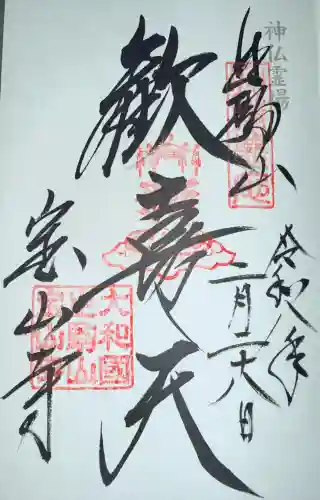 神仏霊場
生駒山
令和八年
二月二十六日
歓喜天
宝山寺
大和國
生駒山
寳山寺